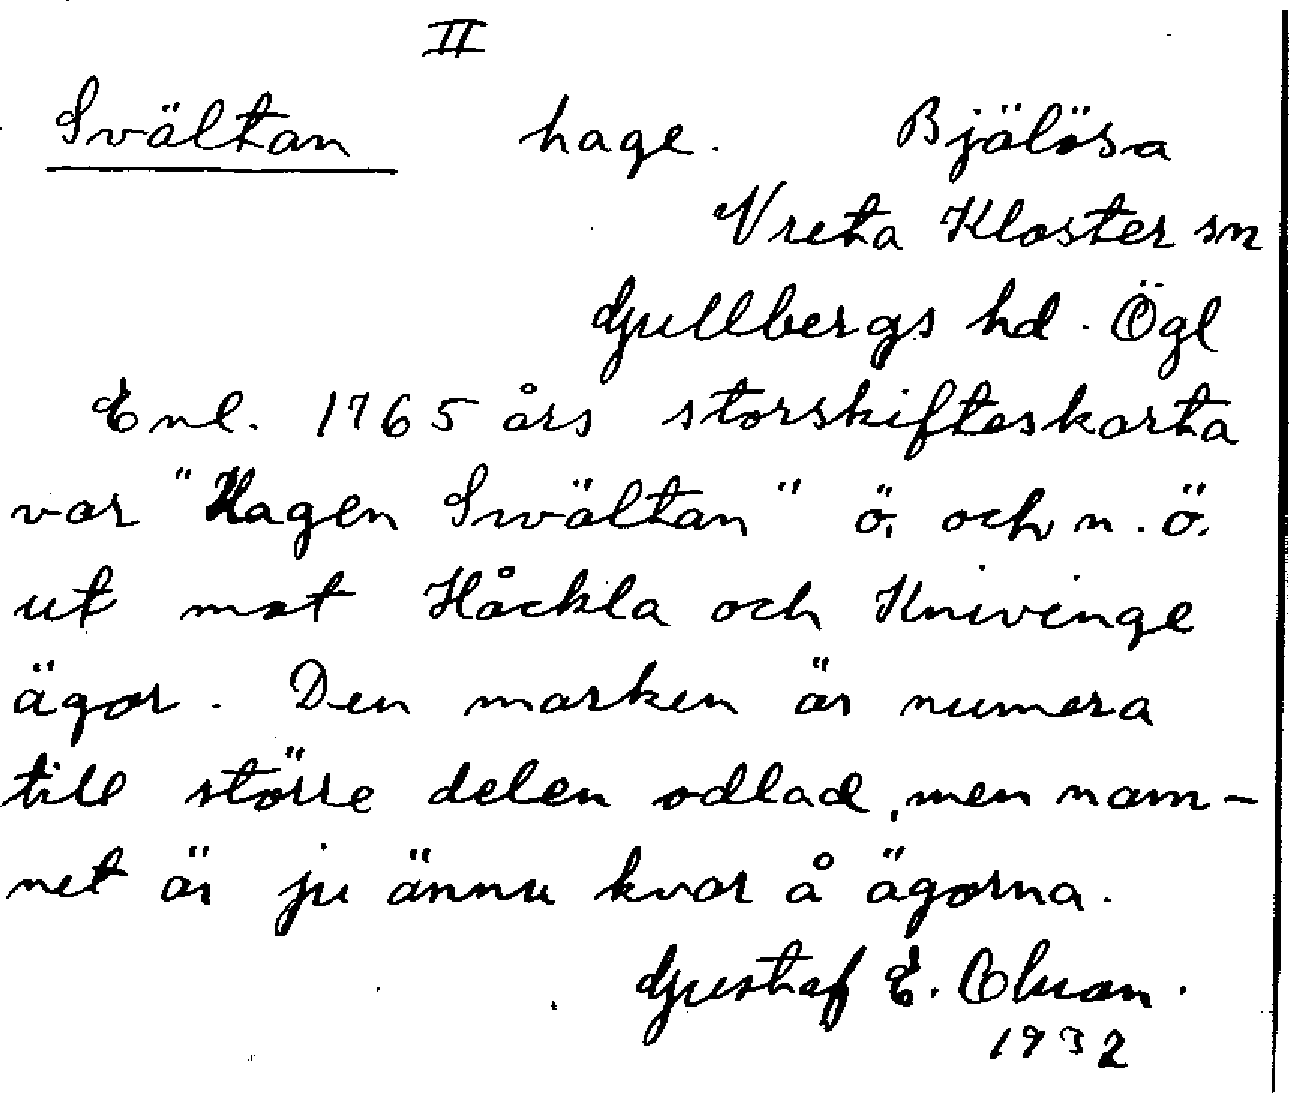 II
Svältan hage. Bjälösa
Vreta Kloster sn
Gullbergs hd. Ögl
Enl. 1765 års storskifteskarta
var "Hagen Swältan" ö. och n.ö.
ut mot Håckla och Knivinge
ägor. Den marken är numera
till större delen odlad, men nam-
net är ju ännu kvar å ägorna.
Gustaf E. Olsson.
1932